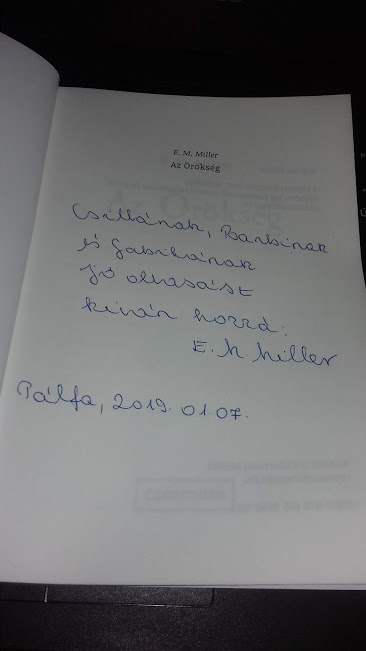 E. M. Miller
Az Örökség
Csillának, Barbinak
és Gabikának
jó olvasást
kíván hozzá:
E. M. Miller
Pálfa, 2019. 01. 07.